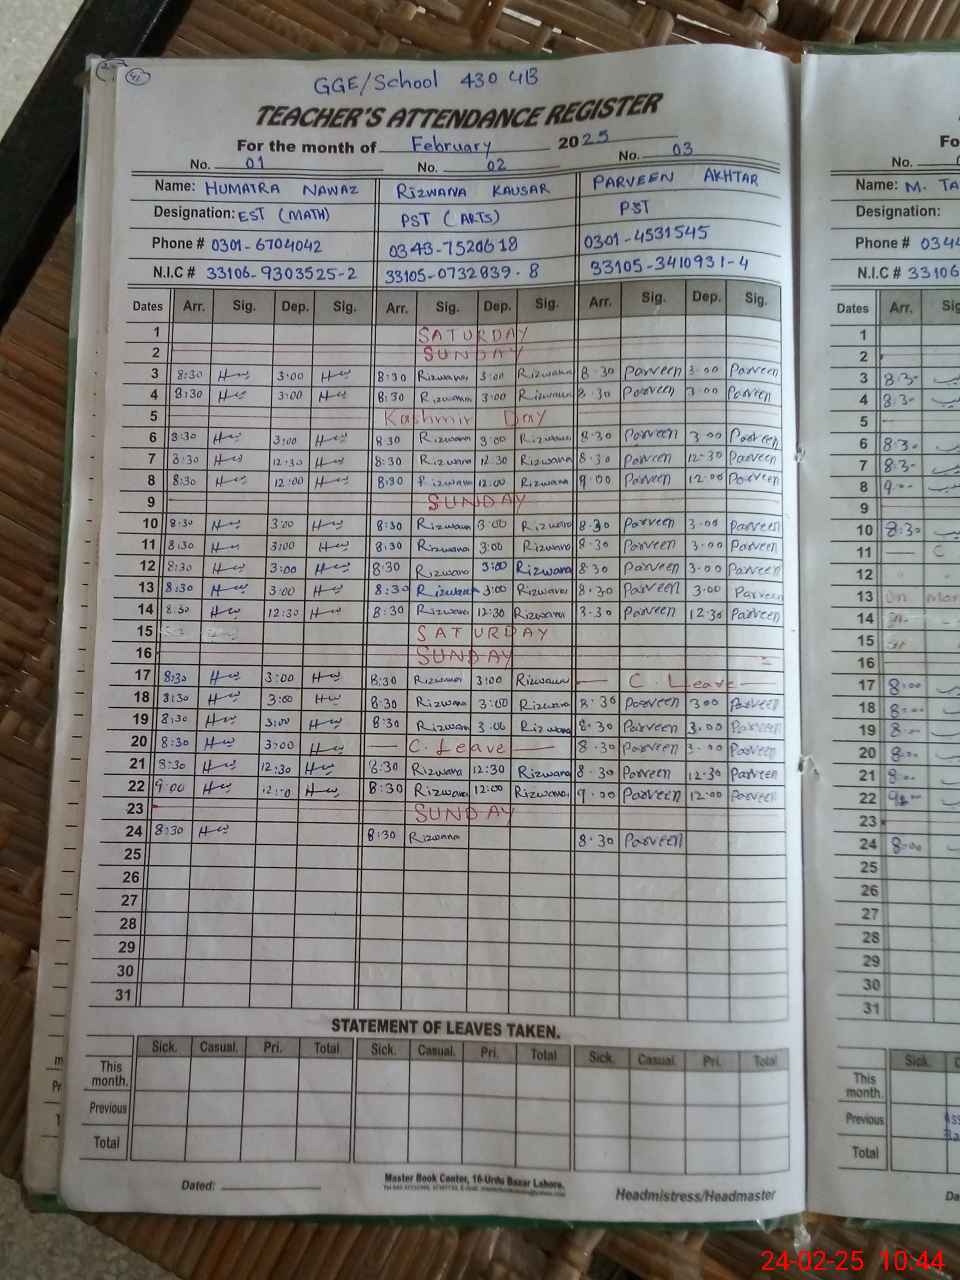 GGE/School 430 GB
TEACHER'S ATTENDANCE REGISTER
For the month of February 2025
No. 01 No. 02 No. 03
Name: HUMAIRA NAWAZ RIZWANA KAUSAR PARVEEN AKHTAR
Designation: EST (MATH) PST (ARTS) PST
Phone # 0301-6704042 0343-7520618 0301-4531545
N.I.C # 33106-9303525-2 33105-0732839-8 33105-3410931-4
Dates Arr. Sig. Dep. Sig. Arr. Sig. Dep. Sig. Arr. Sig. Dep. Sig.
1 SATURDAY
2 SUNDAY
3 8:30 3:00 8:30 Rizwana 3:00 Rizwana 8.30 Parveen 3.00 Parveen
4 8:30 3:00 8:30 Rizwana 3:00 Rizwana 8.30 Parveen 3.00 Parveen
5 Kashmir Day
6 8:30 3:00 8:30 Rizwana 3:00 Rizwana 8.30 Parveen 3.00 Parveen
7 8:30 12:30 8:30 Rizwana 12:30 Rizwana 8.30 Parveen 12.30 Parveen
8 8:30 12:00 8:30 Rizwana 12:00 Rizwana 9.00 Parveen 12.00 Parveen
9 SUNDAY
10 8:30 3:00 8:30 Rizwana 3:00 Rizwana 8.30 Parveen 3.00 Parveen
11 8:30 3:00 8:30 Rizwana 3:00 Rizwana 8.30 Parveen 3.00 Parveen
12 8:30 3:00 8:30 Rizwana 3:00 Rizwana 8.30 Parveen 3.00 Parveen
13 8:30 3:00 8:30 Rizwana 3:00 Rizwana 8.30 Parveen 3.00 Parveen
14 8:30 12:30 8:30 Rizwana 12:30 Rizwana 8.30 Parveen 12.30 Parveen
15 SATURDAY
16 SUNDAY
17 8:30 3:00 8:30 Rizwana 3:00 Rizwana C. Leave
18 8:30 3:00 8:30 Rizwana 3:00 Rizwana 8.30 Parveen 3.00 Parveen
19 8:30 3:00 8:30 Rizwana 3:00 Rizwana 8.30 Parveen 3.00 Parveen
20 8:30 3:00 C. Leave 8.30 Parveen 3.00 Parveen
21 8:30 12:30 8:30 Rizwana 12:30 Rizwana 8.30 Parveen 12.30 Parveen
22 9:00 12:00 8:30 Rizwana 12:00 Rizwana 9.00 Parveen 12.00 Parveen
23 SUNDAY
24 8:30 8:30 Rizwana 8.30 Parveen
25
26
27
28
29
30
31
STATEMENT OF LEAVES TAKEN.
Sick. Casual. Pri. Total Sick. Casual. Pri. Total Sick. Casual. Pri. Total
This month.
Previous
Total
Dated:
Master Book Center, 16-Urdu Bazar Lahore.
Headmistress/Headmaster
Fo
No.
Name: M. TA
Designation:
Phone # 034
N.I.C # 33106
Dates Arr. Sig
1
2
3 8.30
4 8.30
5
6 8.30
7 8.30
8 9.00
9
10 8.30
11 C
12
13
14
15
16
17 8.00
18 8.00
19 8.00
20 8.00
21 8.00
22 9.00
23
24 8.00
25
26
27
28
29
30
31
Sick.
This month.
Previous
Total
Da
24-02-25 10:44